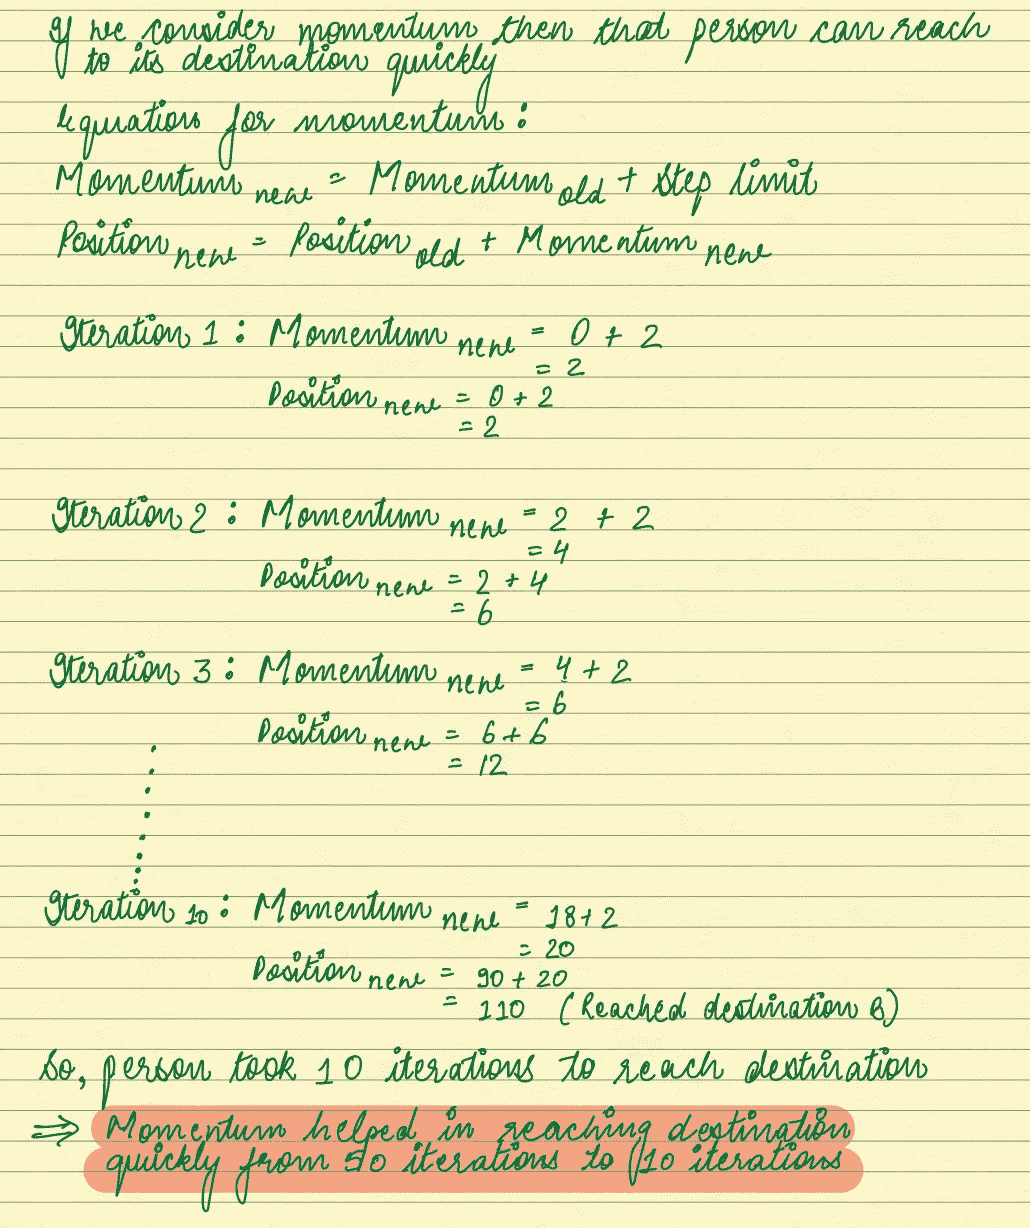 If we consider momentum then that person can reach
to its destination quickly
Equation for momentum :
Momentum new = Momentum old + Step limit
Position new = Position old + Momentum new
Iteration 1 : Momentum new = 0 + 2
= 2
Position new = 0 + 2
= 2
Iteration 2 : Momentum new = 2 + 2
= 4
Position new = 2 + 4
= 6
Iteration 3 : Momentum new = 4 + 2
= 6
Position new = 6 + 6
= 12
Iteration 10 : Momentum new = 18 + 2
= 20
Position new = 90 + 20
= 110 (Reached destination B)
So, person took 10 iterations to reach destination
⇒ Momentum helped in reaching destination
quickly from 50 iterations to 10 iterations